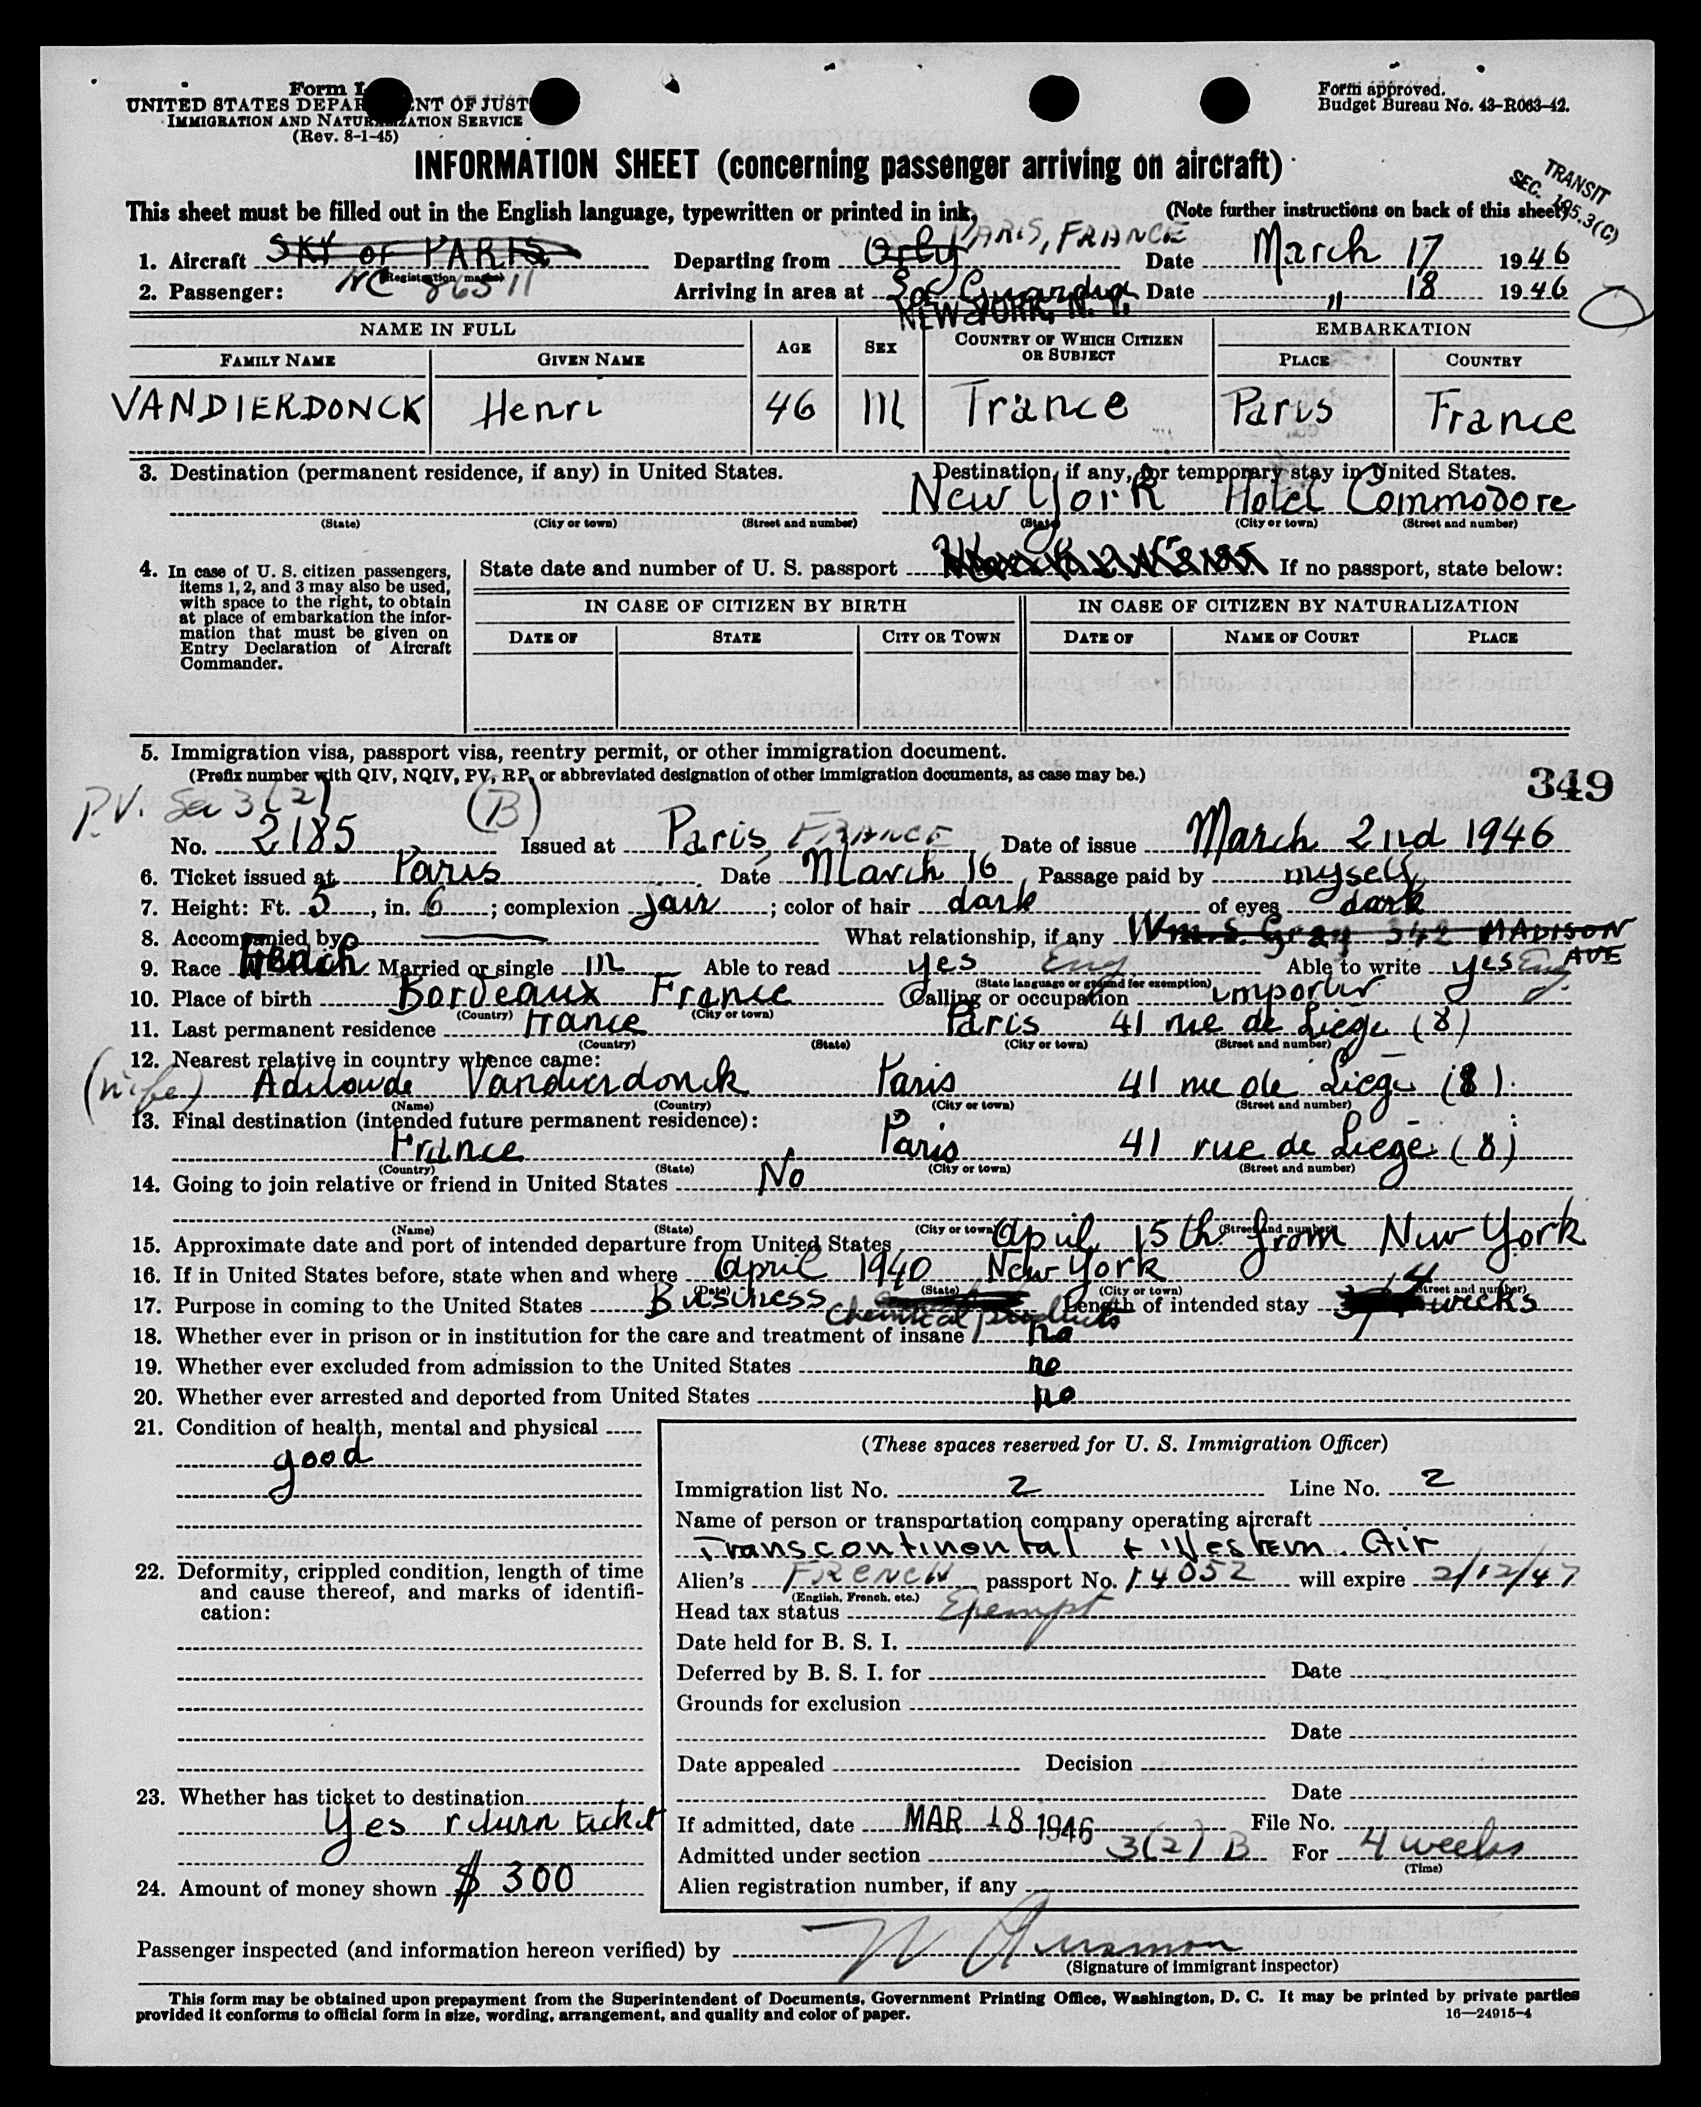 Form I
UNITED STATES DEPAR NT OF JUST
IMMIGRATION AND NATUR ZATION SERVICE
(Rev. 8-1-45)
Form approved.
Budget Bureau No. 43-R063-42.
INFORMATION SHEET (concerning passenger arriving on aircraft)
TRANSIT
SEC. 105.3(C)
This sheet must be filled out in the English language, typewritten or printed in ink. (Note further instructions on back of this sheet)
PARIS, FRANCE
1. Aircraft SKY OF PARIS Departing from Orly Date March 17 1946
(Registration marks)
2. Passenger: NC 86511 Arriving in area at La Guardia Date " 18 1946
NEW YORK, N. Y.
NAME IN FULL AGE SEX COUNTRY OF WHICH CITIZEN OR SUBJECT EMBARKATION
FAMILY NAME GIVEN NAME PLACE COUNTRY
VANDIERDONCK Henri 46 M France Paris France
3. Destination (permanent residence, if any) in United States. Destination, if any, for temporary stay in United States.
New York Hotel Commodore
(State) (City or town) (Street and number) (State) (City or town) (Street and number)
4. In case of U. S. citizen passengers, items 1, 2, and 3 may also be used, with space to the right, to obtain at place of embarkation the information that must be given on Entry Declaration of Aircraft Commander.
State date and number of U. S. passport If no passport, state below:
IN CASE OF CITIZEN BY BIRTH IN CASE OF CITIZEN BY NATURALIZATION
DATE OF STATE CITY OR TOWN DATE OF NAME OF COURT PLACE
5. Immigration visa, passport visa, reentry permit, or other immigration document.
(Prefix number with QIV, NQIV, PV, RP, or abbreviated designation of other immigration documents, as case may be.)
349
P.V. Sec 3(2) (B)
No. 2185 Issued at Paris FRANCE Date of issue March 2nd 1946
6. Ticket issued at Paris Date March 16 Passage paid by myself
7. Height: Ft. 5, in. 6; complexion fair; color of hair dark of eyes dark
8. Accompanied by What relationship, if any Wm. S. Gray 342 MADISON AVE
9. Race French Married or single M Able to read yes Eng Able to write yes Eng
(State language or ground for exemption)
10. Place of birth Bordeaux France Calling or occupation importer
(Country) (City or town)
11. Last permanent residence France Paris 41 rue de Liège (8)
(Country) (State) (City or town) (Street and number)
12. Nearest relative in country whence came:
(wife) Vandierdonck Paris 41 rue de Liège (8)
(Name) (Country) (City or town) (Street and number)
13. Final destination (intended future permanent residence):
France Paris 41 rue de Liège (8)
(Country) (State) (City or town) (Street and number)
14. Going to join relative or friend in United States No
(Name) (State) (City or town) (Street and number)
15. Approximate date and port of intended departure from United States April 15th from New York
16. If in United States before, state when and where April 1940 New York
(Date) (State) (City or town) (Street and number)
17. Purpose in coming to the United States Business Chemical products Length of intended stay 4 weeks
18. Whether ever in prison or in institution for the care and treatment of insane no
19. Whether ever excluded from admission to the United States no
20. Whether ever arrested and deported from United States no
21. Condition of health, mental and physical
good
22. Deformity, crippled condition, length of time and cause thereof, and marks of identification:
23. Whether has ticket to destination
Yes return ticket
24. Amount of money shown $ 300
(These spaces reserved for U. S. Immigration Officer)
Immigration list No. 2 Line No. 2
Name of person or transportation company operating aircraft
Transcontinental & Western Air
Alien's FRENCH passport No. 14052 will expire 2/12/47
(English, French, etc.)
Head tax status Exempt
Date held for B. S. I.
Deferred by B. S. I. for Date
Grounds for exclusion
Date
Date appealed Decision
Date
If admitted, date MAR 18 1946 File No.
Admitted under section 3(2) B For 4 weeks
(Time)
Alien registration number, if any
Passenger inspected (and information hereon verified) by
(Signature of immigrant inspector)
This form may be obtained upon prepayment from the Superintendent of Documents, Government Printing Office, Washington, D. C. It may be printed by private parties
provided it conforms to official form in size, wording, arrangement, and quality and color of paper. 16—24915-4